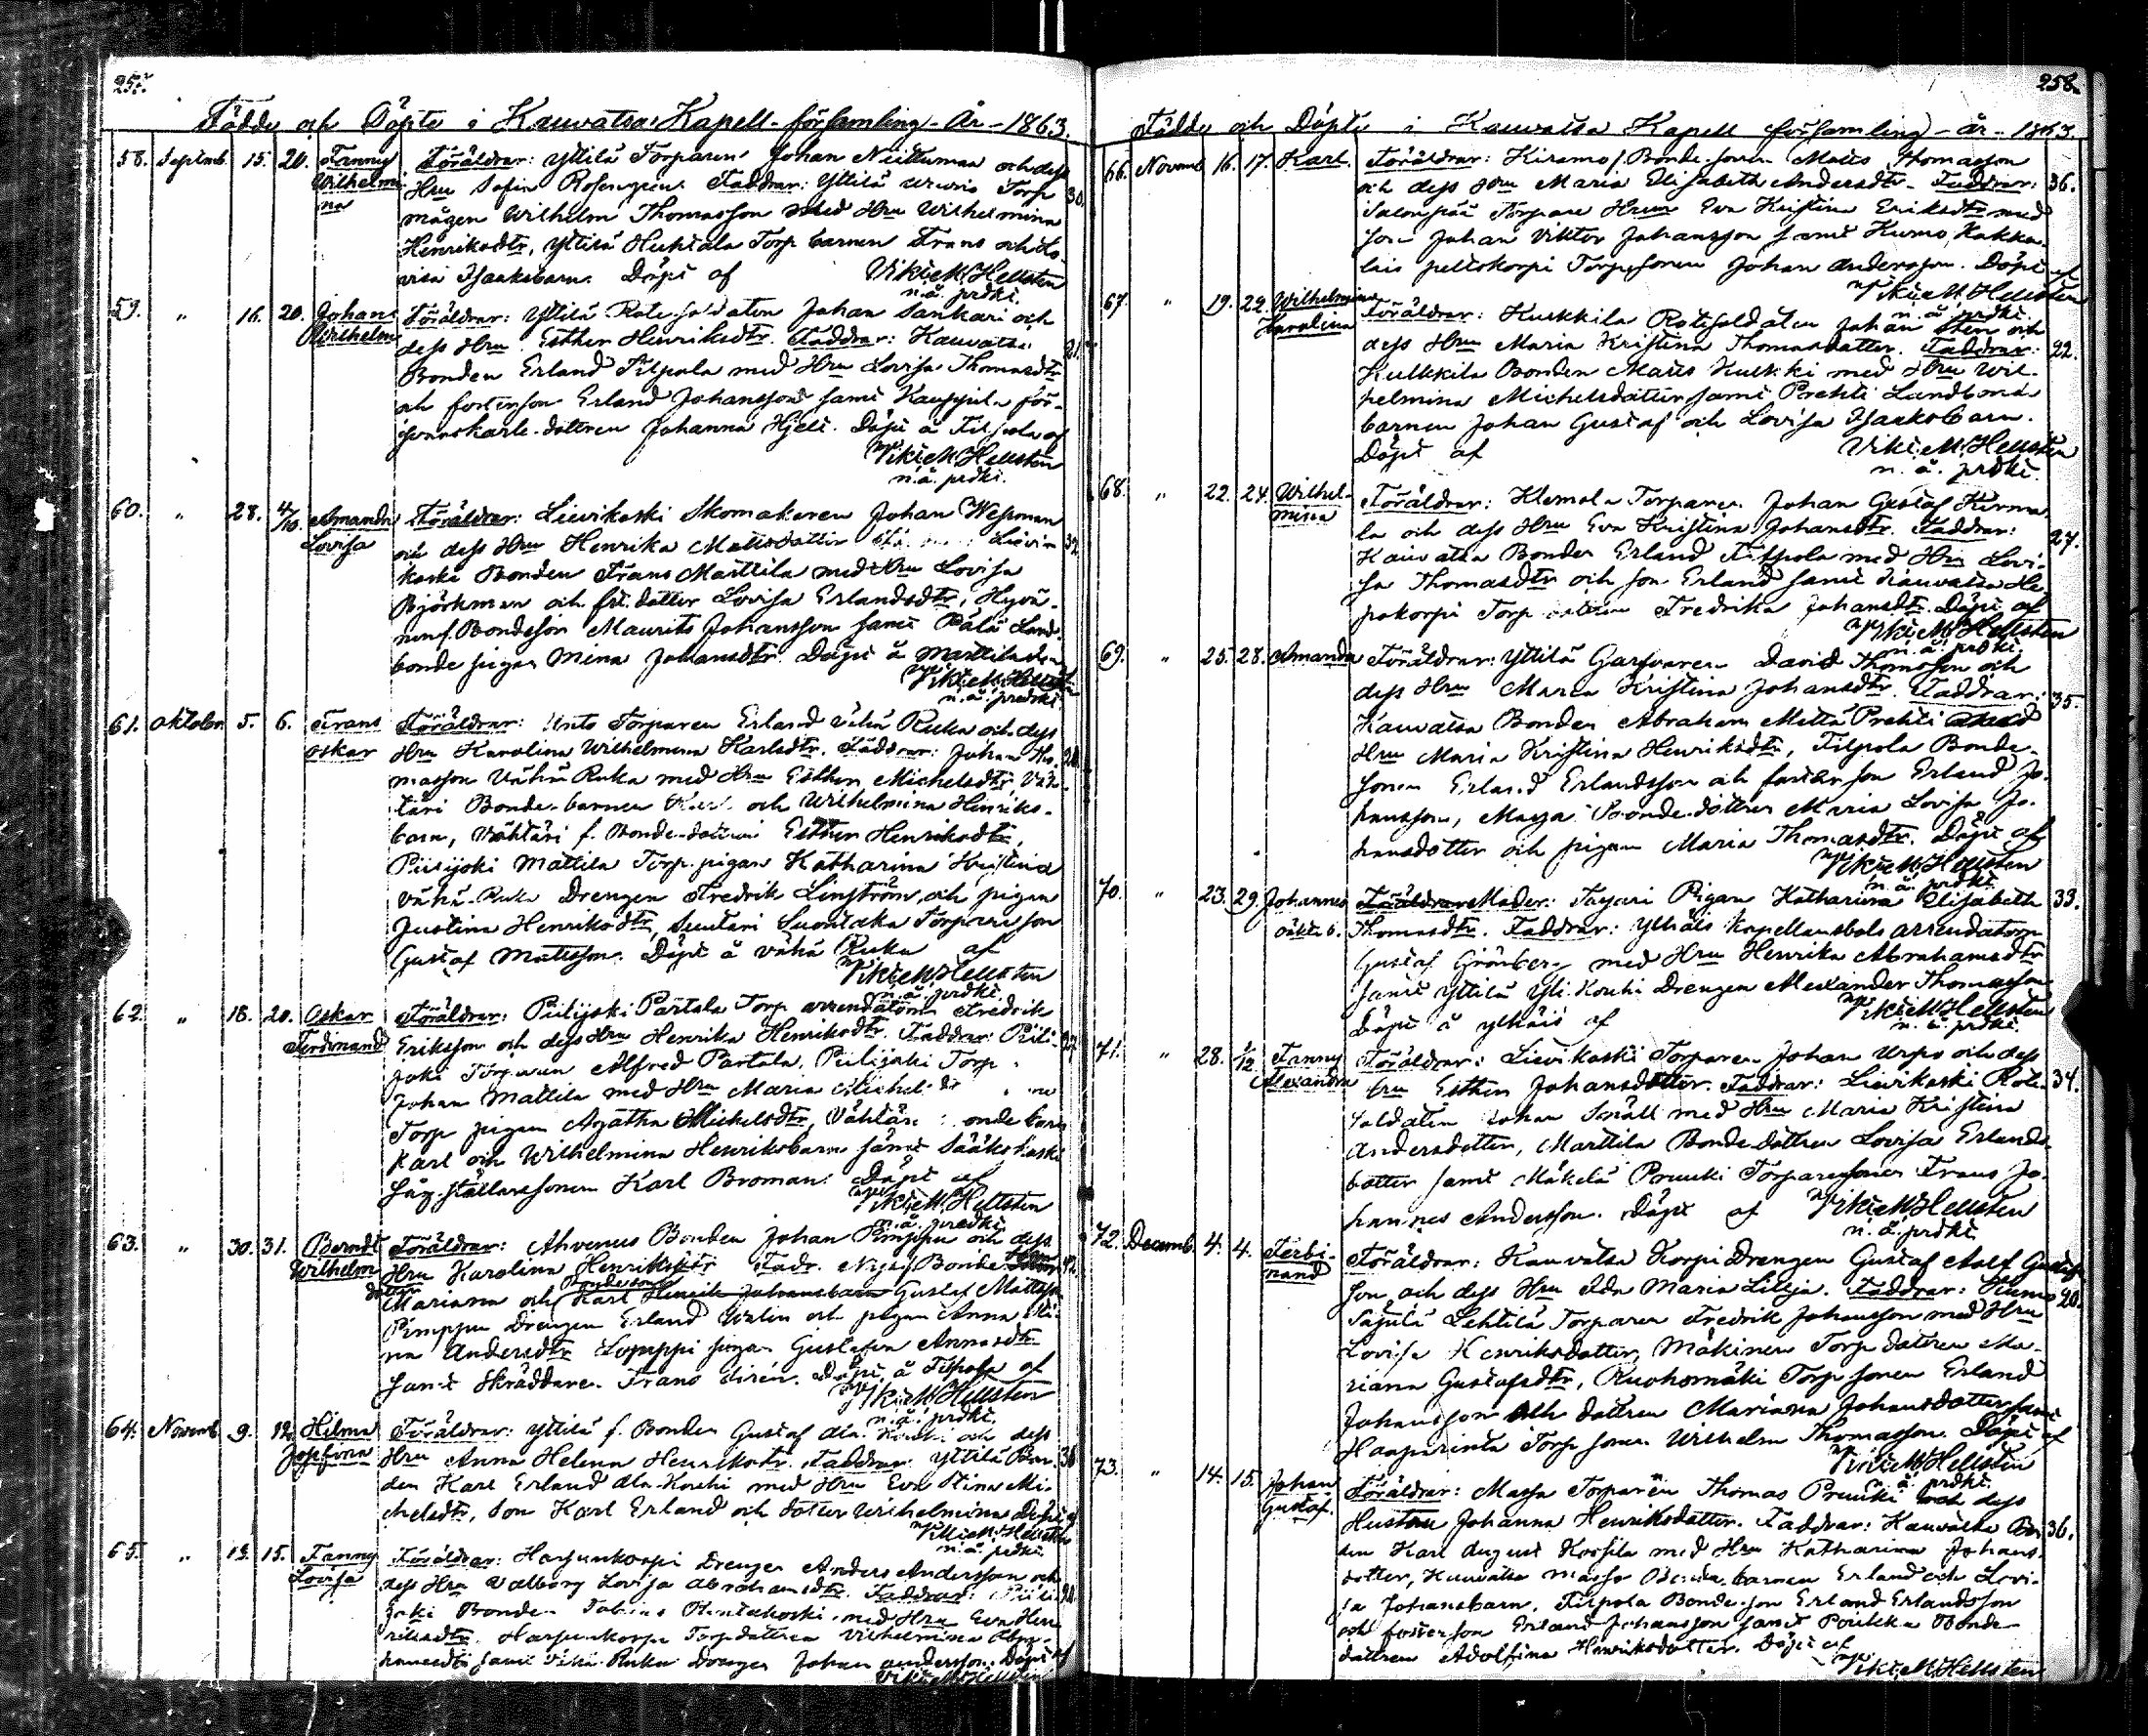 257.
Födde och Döpte i Kauvatsa Kapell-församling - År - 1863.
58. Septmb. 15. 20. Fanny Wilhelmina Föräldrar: Yttilä Torparen Johan Niittuman och dess
Hru Sofia Rosengren. Faddrar: Yttilä Torp 30.
mågen Wilhelm Thomasson med Hru Wilhelmina
Henriksdtr, Yttilä Huhtala Torp barnen Frans och Lo-
visa Isaaksbarn. Döpt af Vikt: M. Hellsten
n. å. prdkt.
59. " 16. 20. Johan Wilhelm Föräldrar: Yttilä Rote soldaten Johan Sankari och
dess Hru Esther Henriksdtr. Faddrar: Kauvatsa
Bonden Erland Tilpola med Hru Lovisa Thomasdtr
och fosterson Erland Johansson samt
dottren Johanna Hjelt. Döpt å Tilpola af
Vikt: M. Hellsten
n. å. prdkt.
60. " 28. 4/10. Amanda Lovisa Föräldrar: Lievikoski Skomakaren Johan Wessman
och dess Hru Henrika Mattsdotter Lievi- 32.
koski Bonden Frans Marttila med Hru Lovisa
Björkman och dotter Lovisa Erlandsdtr, Hyvä-
Bondeson Maurits Johansson samt Pälä Land-
bonde pigan Mina Johansdtr. Döpt å Marttila
Vikt: M. Hellsten
n. å. predkt.
61. Oktober 5. 6. Frans Oskar Föräldrar: Torparen Erland Vähä Ruka och dess
Hru Karolina Wilhelmina Karlsdtr. Faddrar: Johan Tho- 28.
masson Vähä Ruka med Hru Esther Michelsdtr, Väh-
täri Bonde-barnen Karl och Wilhelmina Henriks-
barn, Vähtäri f. Bonde-dottren Esther Henriksdtr,
Piilijoki Mattila Torp. pigan Katharina Kristina
Vähä-Ruka Drengen Fredrik Linström, och pigan
Justina Henriksdtr, Suontaka Torpareson
Gustaf Mattsson. Döpt å Vähä Ruka af
Vikt: M. Hellsten
n. å. prdkt.
62. " 18. 20. Oskar Ferdinand Föräldrar: Piilijoki Partala Torp arrendatorn Fredrik
Eriksson och dess Hru Henrika Henriksdtr. Faddrar: Piili- 27.
joki Torparen Alfred Partala, Piilijoki Torp
Johan Mattila med Hru Maria Michelsdtr
Torp pigan Agatha Michelsdtr, Vähtäri Bonde barn
Karl och Wilhelmina Henriksbarn samt Sääkskoski
Såg-ställaresonen Karl Broman. Döpt af
Vikt: M. Hellsten
n. å. predkt.
63. " 30. 31. Berndt Wilhelm Föräldrar: Ahvenus Bonden Johan Pimppu och dess
Hru Karolina Henriksdtr Fadr. Bonde 42.
dotter Mariana och Bondesonen Karl Henrik Johansbarn Gustaf Mattsson
Pimppu Drengen Erland Walin och pigan Anna Sti-
na Andersdtr Loppuppi pigan Gustafva Annasdtr
samt Skräddare Frans Sirén. Döpt å Tilpola af
Vikt: M. Hellsten
n. å. prdkt.
64. Novemb. 9. 12. Hilma Josefina Föräldrar: Yttilä f. Bonden Gustaf Ala-Kouhi och dess
Hru Anna Helena Henriksdtr. Faddrar: Yttilä Bon- 36
den Karl Erland Ala-Kouhi med Hru Eva Stina Mi-
chelsdtr, son Karl Erland och dotter Wilhelmina Döpt af
Vikt: M. Hellsten
n. å. prdkt.
65. " 13. 15. Fanny Lovisa Föräldrar: Harjunkorpi Drengen Anders Andersson och
dess Hru Walborg Lovisa Abrahamsdtr. Faddrar: Piili-
joki Bonden Tobias med Hru Eva Hen-
riksdtr. Harjunkorpi Torpdottren Vilhelmina Abra-
hamsdtr samt Vähä-Ruka Drengen Johan Andersson. Döpt af
Vikt: M. Hellsten
258.
Födde och Döpte i Kauvatsa Kapell församling - år - 1863.
66. Novemb. 16. 17. Karl. Föräldrar: Kiramo f. Bonde-sonen Matts Thomasson
och dess Hru Maria Elisabeth Andersdtr. Faddrar: 36.
Salonpää Torpare Hrun Eva Kristina Eriksdtr med
son Johan Viktor Johansson samt Kumo, Kakku-
lais peltokorpi Torpsonen Johan Andersson. Döpt af
Vikt: M. Hellsten
n. å. prdkt.
67. " 19. 22. Wilhelmina Karolina Föräldrar: Kulkkila Rotesoldaten Johan Sten och
dess Hru Maria Kristina Thomasdotter. Faddrar: 22.
Kulkkila Bonden Matts Kulkki med Hru Wil-
helmina Michelsdotter samt Prehti Landbonde
barnen Johan Gustaf och Lovisa Isaaksbarn.
Döpt af Vikt: M. Hellsten
n. å. prdkt.
68. " 22. 24. Wilhelmina Föräldrar: Klemola Torparen Johan Gustaf Kirma-
la och dess Hru Eva Kristina Johansdtr. Faddrar: 27.
Kauvatsa Bonden Erland Tilpola med Hru Lovi-
sa Thomasdtr och son Erland samt Kauvatsa He-
pokorpi Torp dottren Fredrika Johansdtr. Döpt af
Vikt: M. Hellsten
n. å. prdkt.
69. " 25. 28. Amanda Föräldrar: Yttilä Garfvaren David Thomsson och
dess Hru Maria Kristina Johansdtr. Faddrar: 35.
Kauvatsa Bonden Abraham Mettä Prehti med
Hru Maria Kristina Henriksdtr, Tilpola Bonde-
sonen Erland Erlandsson och foster son Erland Jo-
hansson, Bonde-dottren Maria Lovisa Jo-
hansdotter och pigan Maria Thomasdtr. Döpt af
Vikt: M. Hellsten
n. å. prdkt.
70. " 23. 29. Johannes oäkta b. Föräldrar Moder: Pigan Katharina Elisabeth 33.
Thomasdtr. Faddrar: Ylhäis kapellansbols arrendatorn
Gustaf Grönberg med Hru Henrika Abrahamsdtr
samt Yttilä Yli-Kouhi Drengen Alexander Thomasson.
Döpt å Ylhäis af Vikt: M. Hellsten
n. å. prdkt.
71. " 28. 1/12 Fanny Alexandra Föräldrar: Lievikoski Torparen Johan Urpo och dess
Hru Esther Johansdotter. Faddrar: Lievikoski Rote- 34.
soldaten Johan Snäll med Hru Maria Kristina
Andersdotter, Marttila Bonde dottren Lovisa Erlands-
dotter samt Mäkelä Pruuki Torparesonen Frans Jo-
hannes Andersson. Döpt af Vikt: M. Hellsten
n. å. prdkt.
72. Decemb. 4. 4. Ferdinand Föräldrar: Kauvatsa Korpi Drengen Gustaf Adolf Gustafs-
son och dess Hru Ida Maria Lilja. Faddrar: Kumo 20.
Lehtilä Torparen Fredrik Johansson med Hru
Lovisa Henriksdotter, Mäkinen Torp dottren Ma-
riana Gustafsdtr, Ruohomäki Torp sonen Erland
Johansson och dottren Mariana Johansdotter samt
Haapirinta Torp sonen Wilhelm Thomasson. Döpt af
Vikt: M. Hellsten
n. å. prdkt.
73. " 14. 15. Johan Gustaf. Föräldrar: Massa Torparen Thomas Pruuki och dess
Hustru Johanna Henriksdotter. Faddrar: Kauvatsa Bon- 36.
den Karl August Kossila med Hru Katharina Johans-
dotter, Kauvatsa Massa Bonde-barnen Erland och Lovi-
sa Johansbarn, Tilpola Bonde-son Erland Erlandsson
och fosterson Erland Johansson samt Poukka Bonde-
dottren Adolfina Henriksdotter. Döpt af
Vikt: M. Hellsten